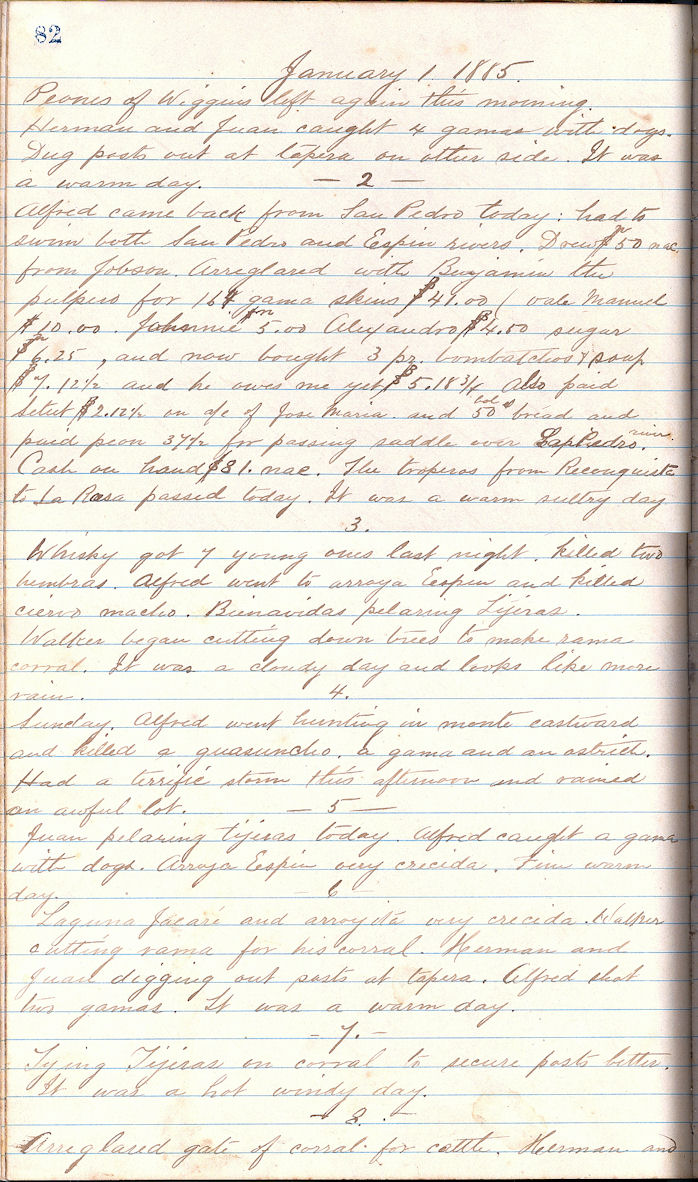 82
January 1 1885.
Peones of Wiggins left again this morning.
Herman and Juan caught 4 gamas with dogs.
Dug posts out at tapera on other side. It was
a warm day. — 2 —
Alfred came back from San Pedro today: had to
swim both San Pedro and Espin rivers. Drew $50 nac.
from Jobson. Arreglared with Benjamin the
pulpero for 164 gama skins $41.00 / vale Manuel
$10.00. Johnnie 5.00 Alejandro $4.50 sugar
$6.25, and now bought 3 pr. bombatchos & soap
$7.12½ and he owes me yet $5.18¾ Also paid
$2.12½ on a/c of Jose Maria. and 50 bread and
paid peon 37½ for passing saddle over San Pedro river.
Cash on hand $81. nac. The troperos from Reconquista
to La Rosa passed today. It was a warm sultry day
3.
Whisky got 7 young ones last night. killed two
hembras. Alfred went to arroya Espin and killed
ciervo macho. Bienavidas pelaring Tijeras.
Walker began cutting down trees to make rama
corral. It was a cloudy day and looks like more
rain. 4.
Sunday. Alfred went hunting in monte eastward
and killed a guasuncho. a gama and an ostrich.
Had a terrific storm this afternoon and rained
an awful lot. — 5 —
Juan pelaring tijeras today. Alfred caught a gama
with dogs. Arroya Espin very crecida. Fine warm
day. — 6 —
Laguna Jacaré and arroyita very crecida. Walker
cutting rama for his corral. Herman and
Juan digging out posts at tapera. Alfred shot
two gamas. It was a warm day.
— 7. —
Tying Tijeras on corral to secure posts better.
It was a hot windy day.
— 8. —
Arreglared gate of corral for cattle. Herman and